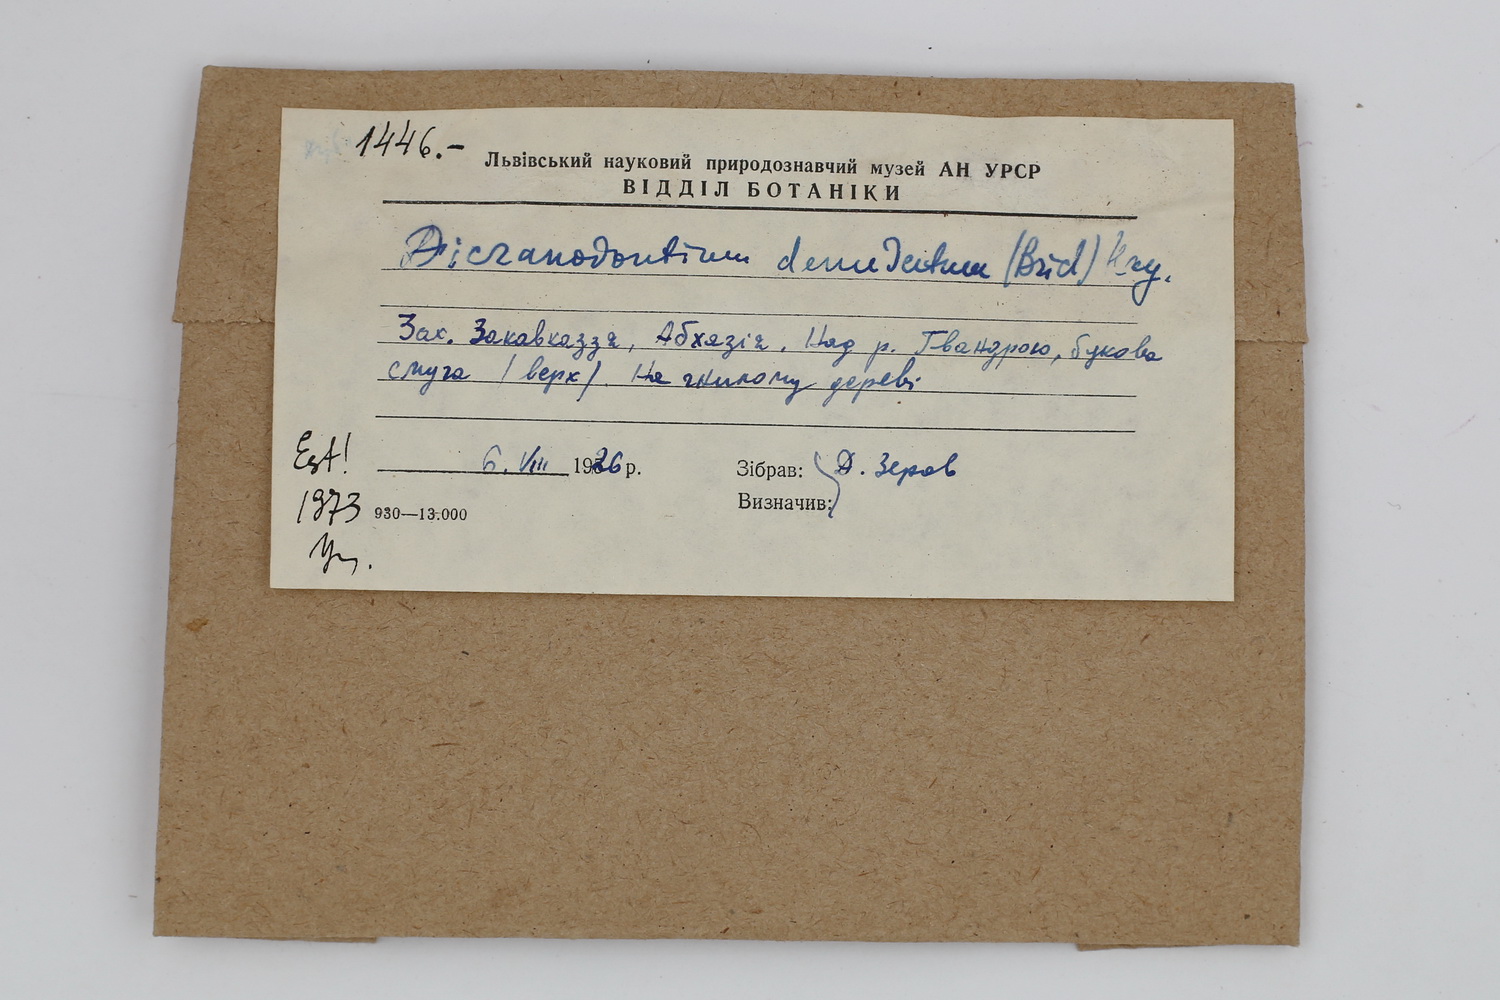 1446.-
Львівський науковий природознавчий музей АН УРСР
ВІДДІЛ БОТАНІКИ
Dicranodontium denudatum (Brid)
Зах. Закавказзя, Абхазія. Над р. Гвандрою, букова
смуга (верх). На гнилому дереві
Est!
6. VIII 1926 р.
Зібрав: Д. Зеров
Визначив:
1973
930—13.000